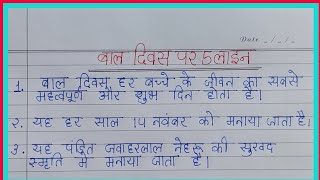 Date _/_/_
बाल दिवस पर 5 लाइन
1. बाल दिवस हर बच्चे के जीवन का सबसे
महत्वपूर्ण और शुभ दिन होता है।
२. यह हर साल 14 नवंबर को मनाया जाता है।
३. यह पंडित जवाहरलाल नेहरू की सुखद
स्मृति में मनाया जाता है।